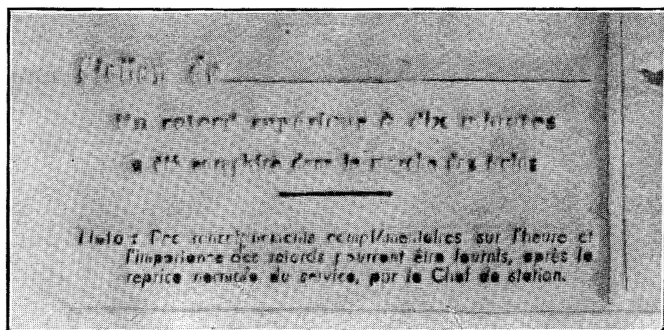 Station de
Un retard supérieur à dix minutes
a été enregistré dans la marche des trains
Nota : Des renseignements complémentaires sur l'heure et
l'importance des retards pourront être fournis, après la
reprise normale du service, par le Chef de station.